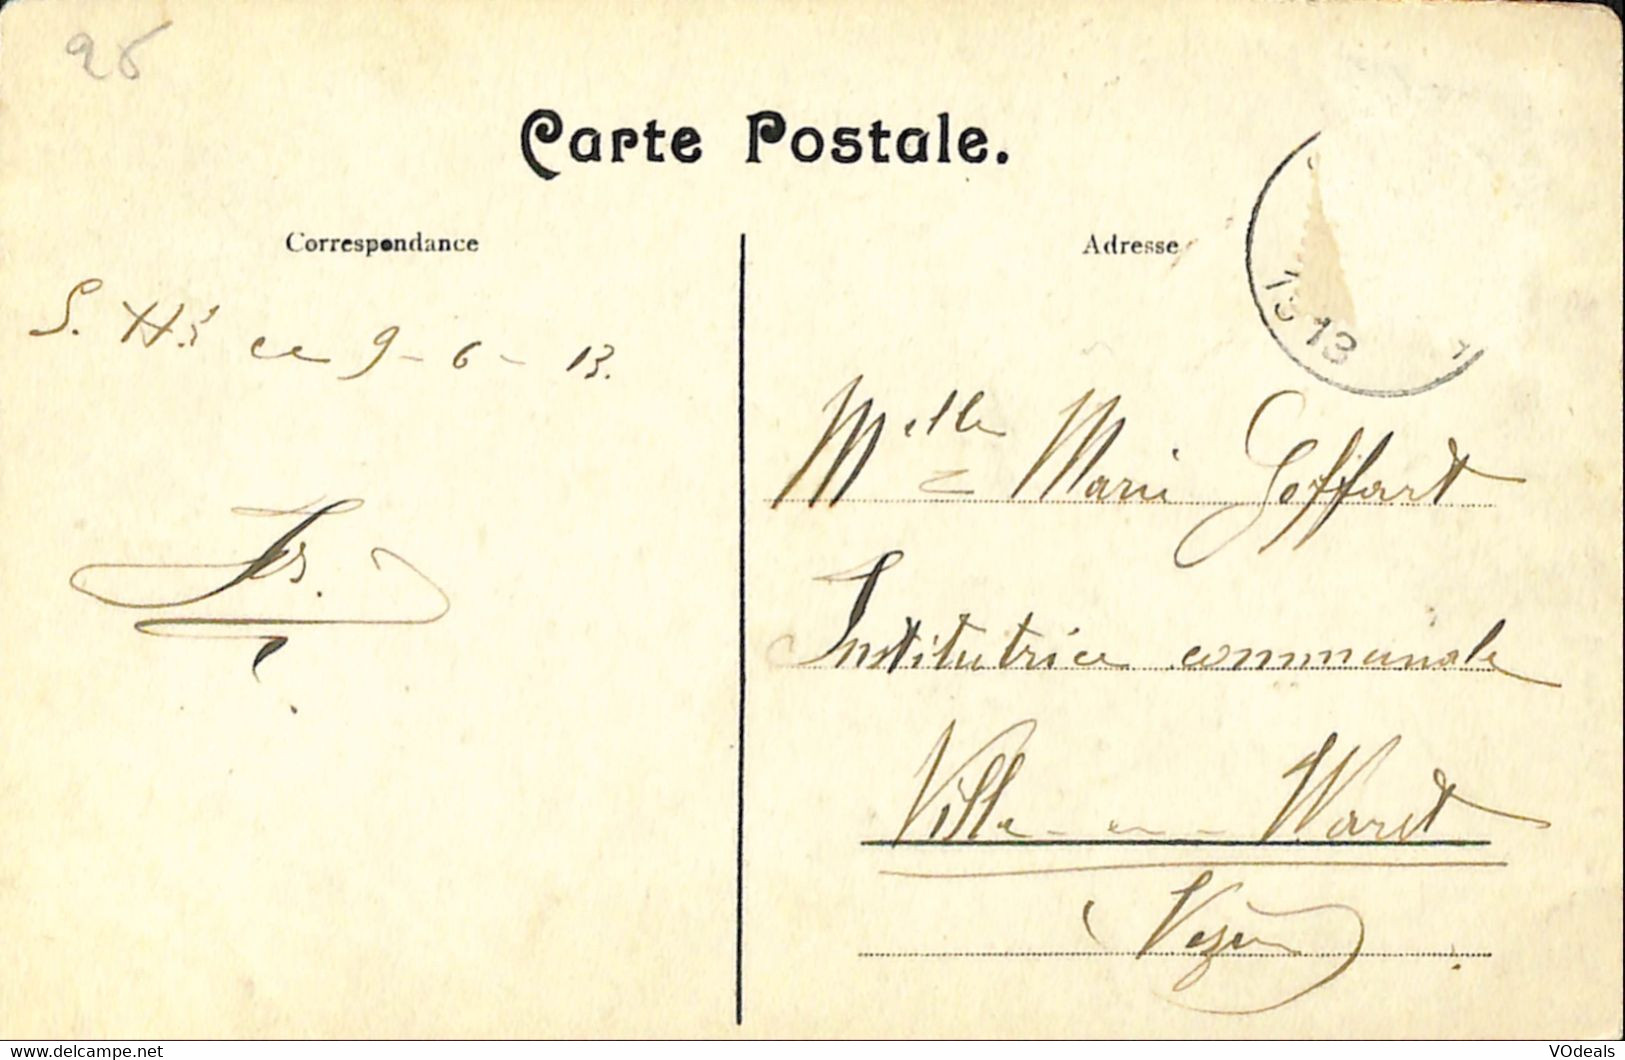 Carte Postale.
Correspondance
Adresse
13 13
ce 9-6-13.
Melle Marie Goffart
Institutrice communale
Ville-en-Waret
Vezin
delcampe.net
VOdeals